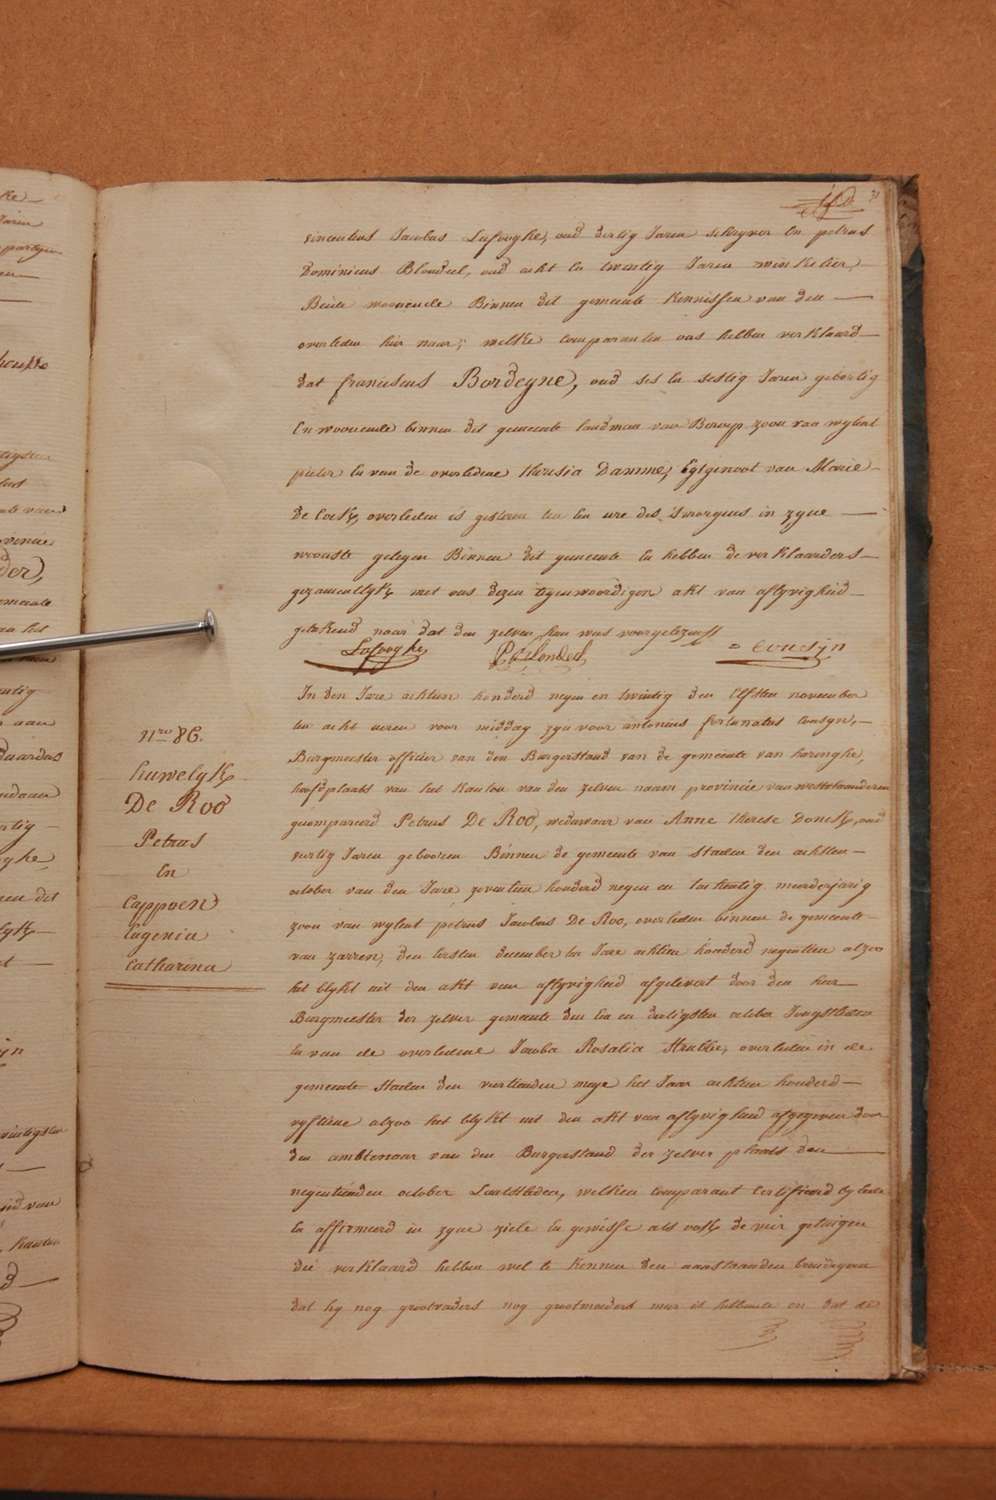 vincentius Jacobus Lafooghe, oud dertig Jaren schryver En petrus
Dominicus Blondeel, oud acht En twintig Jaren winkelier,
Beide woonende Binnen dit gemeente Kennissen van den
overleden hier naar; welke Comparanten ons hebben verklaard
dat franciscus Bardeyne, oud ses En sestig Jaren geboortig
En woonende binnen dit gemeente landman van Beroep zoon van wylent
pieter En van de overledene theresia Damme, Egtgenoot van Marie
De Cock, overleden is gisteren ten tien ure des 'smorgens in zyne
wooniste gelegen Binnen dit gemeente En hebben de verklaarders
gezamentlyk met ons dezen tegenwoordigen akt van aflyvigheid
getekend naar dat den zelven hun was voorgelezen
Lafooghe P Blondeel Cousyn
In den Jare achtien honderd negen en twintig den Elfsten november
ten acht ueren voor middag zyn voor antonius fortunatus Cousyn,
Burgmeester officier van den Burgerstand van de gemeente van haringhe,
hoofdplaats van het Kanton van den zelven naam provincie van westvlaanderen
gecompareerd Petrus De Roo, weduwaar van Anne therese Donck, oud
veertig Jaren geboren Binnen de gemeente van Staden den achtsten
october van den Jare zeventien honderd negen en tachentig meerderjarig
zoon van wylent petrus Jacobus De Roo, overleden binnen de gemeente
van zarren, den eersten december Een Jare achtien honderd negentien alzoo
het blykt uit den akt van aflyvigheid afgelevert door den heer
Burgmeester der zelver gemeente den Een en dertigsten october Jongstleden
En van de overledene Jacoba Rosalia Strubbe, overleden in de
gemeente Staden den viertienden meye het Jaar achtien honderd
vyftiene alzoo het blykt uit den akt van aflyvigheid afgegeven door
den ambtenaar van den Burgerstand der zelver plaats den
negentienden october Laatstleden, welken Comparant Certifieerd by Eede
En affirmeerd in zyne ziele En gewisse als ook de vier getuigen
die verklaard hebben wel te Kennen den aanstaanden bruidegom
dat hy nog grootvaders nog grootmoeders meer is hebbende en dat de
N.ro 86.
huwelyk
De Roo
Petrus
En
Cappoen
Eugenia
Catharina